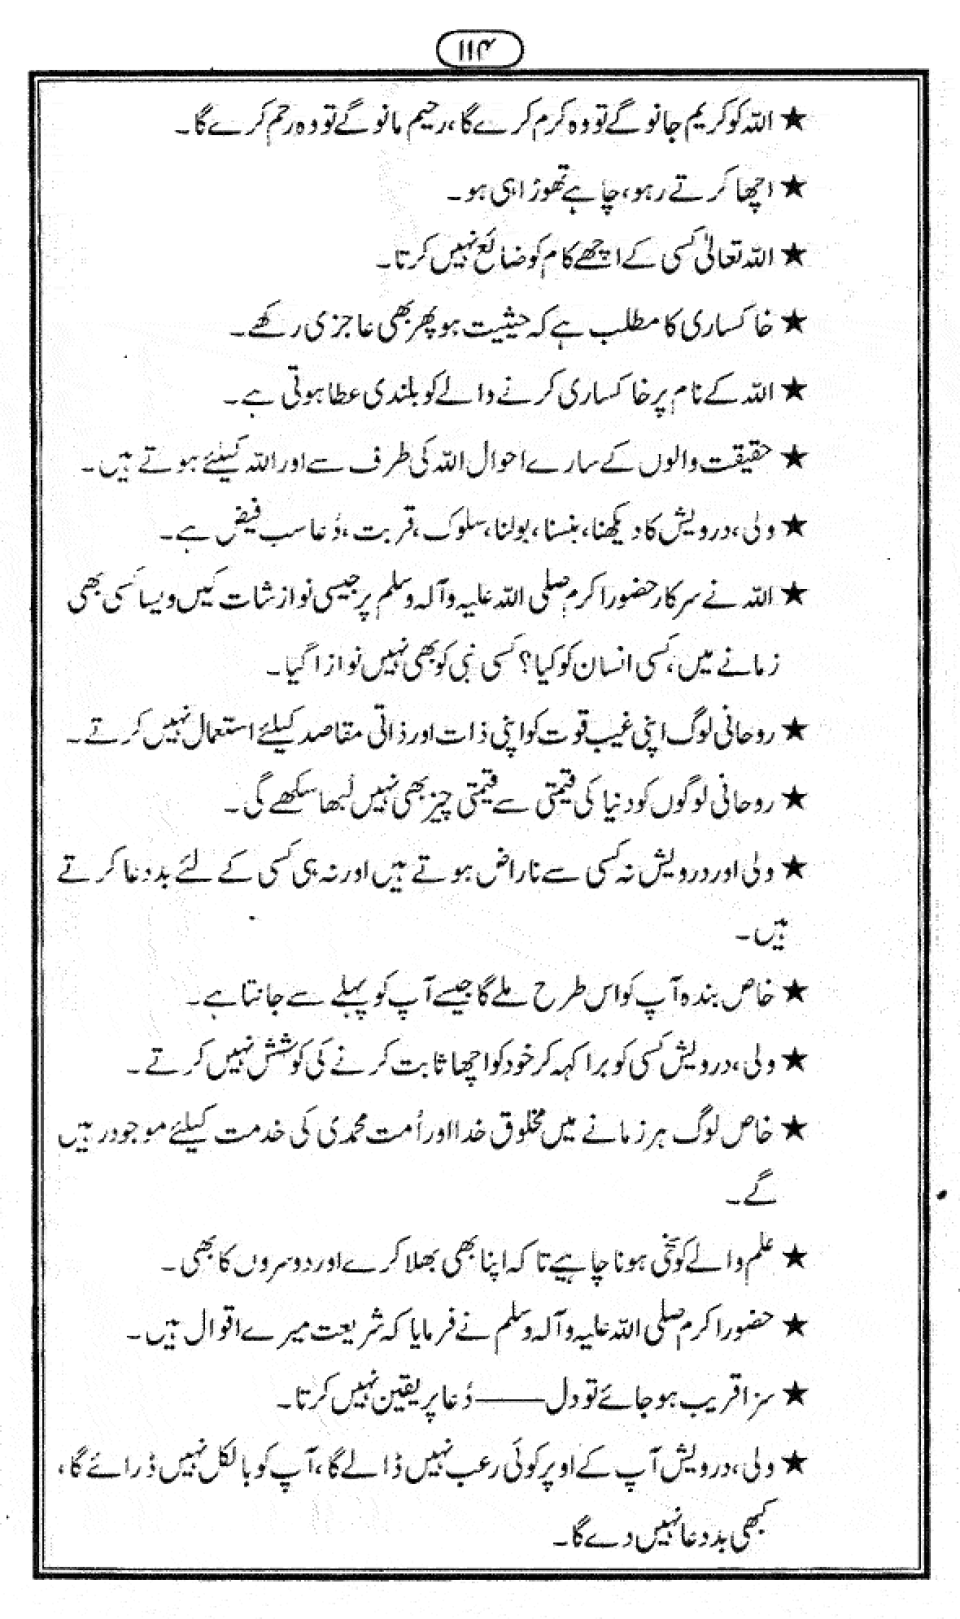 ۱۱۴
★ اللہ کو کریم جانو گے تو وہ کرم کرے گا، رحیم مانو گے تو وہ رحم کرے گا۔
★ اچھا کرتے رہو، چاہے تھوڑا ہی ہو۔
★ اللہ تعالیٰ کسی کے اچھے کام کو ضائع نہیں کرتا۔
★ خاکساری کا مطلب ہے کہ حیثیت ہو پھر بھی عاجزی رکھے۔
★ اللہ کے نام پر خاکساری کرنے والے کو بلندی عطا ہوتی ہے۔
★ حقیقت والوں کے سارے احوال اللہ کی طرف سے اور اللہ کیلئے ہوتے ہیں۔
★ ولی، درویش کا دیکھنا، ہنسنا، بولنا، سلوک، قربت، دُعا سب فیض ہے۔
★ اللہ نے سرکار حضور اکرم صلی اللہ علیہ وآلہ وسلم پر جیسی نوازشات کیں ویسا کسی بھی
زمانے میں، کسی انسان کو کیا؟ کسی نبی کو بھی نہیں نوازا گیا۔
★ روحانی لوگ اپنی غیب قوت کو اپنی ذات اور ذاتی مقاصد کیلئے استعمال نہیں کرتے۔
★ روحانی لوگوں کو دنیا کی قیمتی سے قیمتی چیز بھی نہیں لُبھا سکھے گی۔
★ ولی اور درویش نہ کسی سے ناراض ہوتے ہیں اور نہ ہی کسی کے لئے بددعا کرتے
ہیں۔
★ خاص بندہ آپ کو اس طرح ملے گا جیسے آپ کو پہلے سے جانتا ہے۔
★ ولی، درویش کسی کو برا کہہ کر خود کو اچھا ثابت کرنے کی کوشش نہیں کرتے۔
★ خاص لوگ ہر زمانے میں مخلوق خدا اور اُمت محمدی کی خدمت کیلئے موجود رہیں
گے۔
★ علم والے کو سخی ہونا چاہیے تاکہ اپنا بھی بھلا کرے اور دوسروں کا بھی۔
★ حضور اکرم صلی اللہ علیہ وآلہ وسلم نے فرمایا کہ شریعت میرے اقوال ہیں۔
★ سزا قریب ہو جائے تو دل —— دُعا پر یقین نہیں کرتا۔
★ ولی، درویش آپ کے اوپر کوئی رعب نہیں ڈالے گا، آپ کو بالکل نہیں ڈرائے گا،
کبھی بددعا نہیں دے گا۔